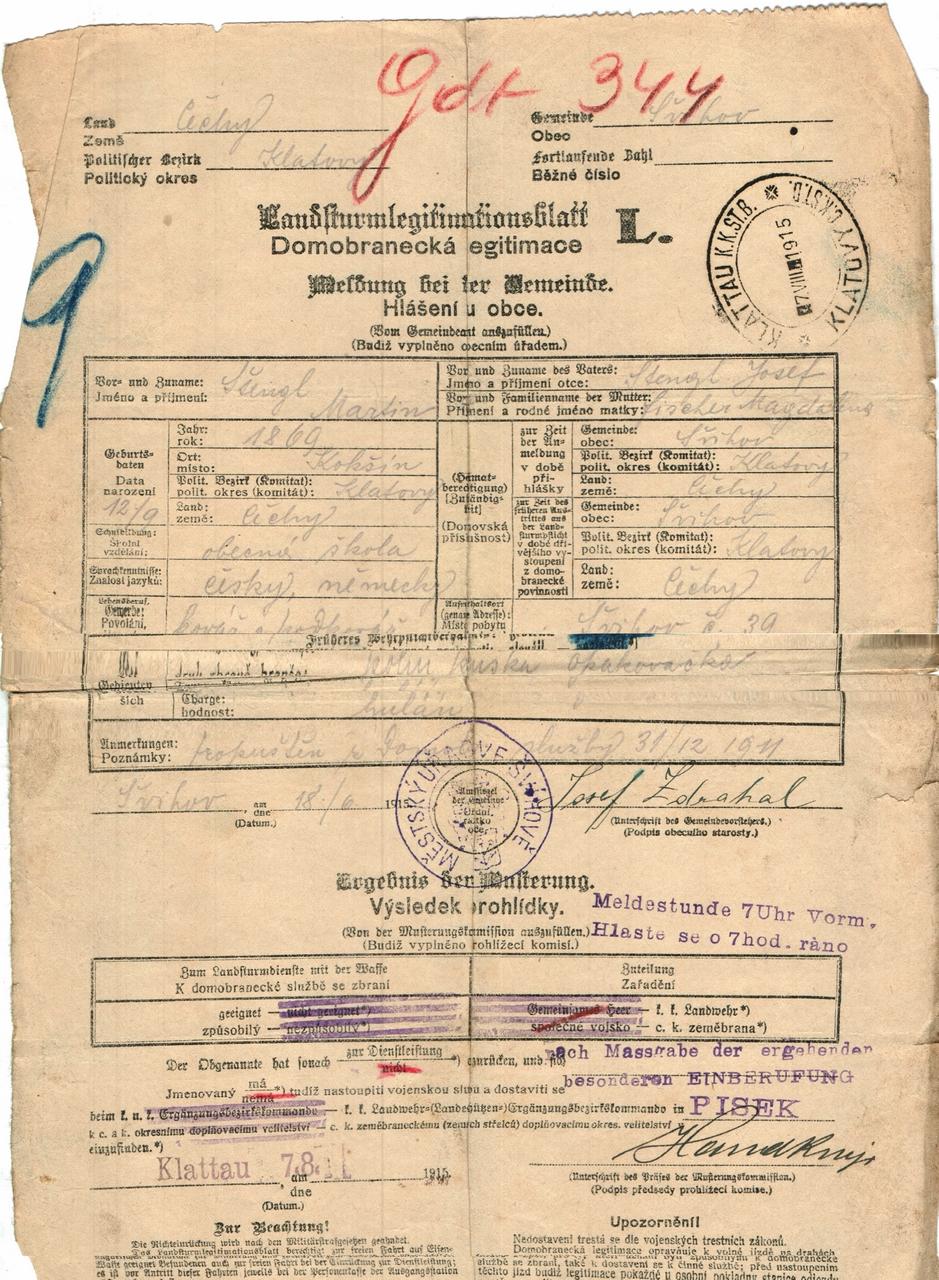 Gdt 344
Land Čechy
Země
Politischer Bezirk Klatovy
Politický okres
Gemeinde Švihov
Obec
Fortlaufende Zahl
Běžné číslo
9
Landsturmlegitimationsblatt L.
Domobranecká legitimace
KLATTAU K.K.ST.B. KLATOVY C.K.ST.D.
7 VIII 1915
Meldung bei der Gemeinde.
Hlášení u obce.
(Vom Gemeindeamt auszufüllen.)
(Budiž vyplněno obecním úřadem.)
Vor- und Zuname: Štengl
Jméno a příjmení: Martin
Vor und Zuname des Vaters: Štengl Josef
Jméno a příjmení otce:
Vor- und Familienname der Mutter: Fischer Magdalena
Příjmení a rodné jméno matky:
Geburts-
daten
Data
narození
12/9
Jahr: 1869
rok:
Ort: Kokšín
místo:
Polit. Bezirk (Komitat): Klatovy
polit. okres (komitát):
Land: Čechy
země:
(Heimat-
beredtigung)
(Zuständig-
keit)
(Domovská
příslušnost)
zur Zeit
der An-
meldung
v době
při-
hlášky
Gemeinde: Švihov
obec:
Polit. Bezirk (Komitat): Klatovy
polit. okres (komitát):
Land: Čechy
země:
zur Zeit des
früheren Aus-
trittes aus
der Land-
sturmpflicht
v době dří-
vějšího vy-
stoupení
z domo-
branecké
povinnosti
Gemeinde: Švihov
obec:
Polit. Bezirk (Komitat): Klatovy
polit. okres (komitát):
Land: Čechy
země:
Schulbildung: obecná škola
Školní
vzdělání:
Sprachkenntnisse: český, německy
Znalosti jazyků:
Lebensberuf,
Gewerbe: kovář a podkovář
Povolání,
Aufenthaltsort
(genaue Adresse): Švihov č. 39
Místo pobytu
Früheres
Gedienten
sich
Charge: hulán
hodnost:
Anmerkungen: propuštěn z domob. služby 31/12 1911
Poznámky:
Švihov am 18/6 1915
dne
(Datum.)
MĚSTSKÝ ÚŘAD VE ŠVIHOVĚ
Josef Zdrahal
(Unterschrift des Gemeindevorstehers.)
(Podpis obecního starosty.)
Ergebnis der Musterung.
Výsledek prohlídky.
(Von der Musterungskommission auszufüllen.)
(Budiž vyplněno prohlížecí komisí.)
Meldestunde 7Uhr Vorm.
Hlaste se o 7hod. ráno
Zum Landsturmdienste mit der Waffe
K domobranecké službě se zbraní
Zuteilung
Zařadění
geeignet — nicht geeignet*)
způsobilý — nezpůsobilý*)
Gemeinsames Heer — k. k. Landwehr*)
společné vojsko — c. k. zeměbrana*)
Der Obgenannte hat sonach zur Dienstleistung / nicht *) einzurücken, und sich
nach Massgabe der ergehenden
Jmenovaný má / nemá *) tudíž nastoupiti vojenskou službu a dostaviti se
besonderen EINBERUFUNG
beim k. u. k. Ergänzungsbezirkskommando — k. k. Landwehr-(Landesschützen-)Ergänzungsbezirkskommando in PISEK
k c. a k. okresnímu doplňovacímu velitelství — c. k. zeměbraneckému (zemsk střelců) doplňovacímu okres. velitelství
einzufinden.*)
Klattau 7.8. am 1915.
dne
(Datum.)
(Unterschrift des Präses der Musterungskommission.)
(Podpis předsedy prohlížecí komise.)
Zur Beachtung!
Die Nichteinrückung wird nach den Militärstrafgesetzen geahndet.
Das Landsturmlegitimationsblatt berechtigt zur freien Fahrt auf Eisen-
Waffe geeignet Befundenen auch zur freien Fahrt bei der Einrückung zur Dienstleistung;
es ist vor Antritt dieser Fahrten jeweils bei der Personenkasse der Ausgangsstation
Upozornění!
Nedostavení trestá se dle vojenských trestních zákonů.
Domobranecká legitimace opravňuje k volné jízdě na drahách
službě se zbraní, také k dostavení se k činné službě; před nastoupením
těchto jízd budiž legitimace pokaždé u osobní pokladny stanice odjezdu